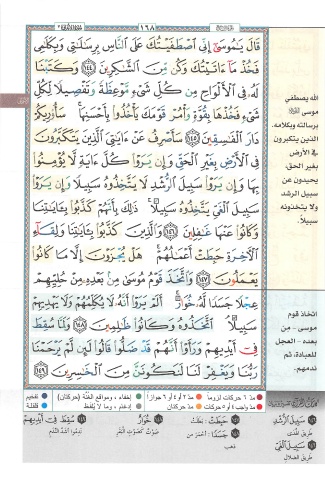 ١٦٨
قَالَ يَٰمُوسَىٰٓ إِنِّى ٱصْطَفَيْتُكَ عَلَى ٱلنَّاسِ بِرِسَٰلَٰتِى وَبِكَلَٰمِى
فَخُذْ مَآ ءَاتَيْتُكَ وَكُن مِّنَ ٱلشَّٰكِرِينَ ١٤٤ وَكَتَبْنَا
لَهُۥ فِى ٱلْأَلْوَاحِ مِن كُلِّ شَىْءٍ مَّوْعِظَةً وَتَفْصِيلًا لِّكُلِّ
شَىْءٍ فَخُذْهَا بِقُوَّةٍ وَأْمُرْ قَوْمَكَ يَأْخُذُوا۟ بِأَحْسَنِهَا ۚ سَأُو۟رِيكُمْ
دَارَ ٱلْفَٰسِقِينَ ١٤٥ سَأَصْرِفُ عَنْ ءَايَٰتِىَ ٱلَّذِينَ يَتَكَبَّرُونَ
فِى ٱلْأَرْضِ بِغَيْرِ ٱلْحَقِّ وَإِن يَرَوْا۟ كُلَّ ءَايَةٍ لَّا يُؤْمِنُوا۟
بِهَا وَإِن يَرَوْا۟ سَبِيلَ ٱلرُّشْدِ لَا يَتَّخِذُوهُ سَبِيلًا وَإِن يَرَوْا۟
سَبِيلَ ٱلْغَىِّ يَتَّخِذُوهُ سَبِيلًا ۚ ذَٰلِكَ بِأَنَّهُمْ كَذَّبُوا۟ بِـَٔايَٰتِنَا
وَكَانُوا۟ عَنْهَا غَٰفِلِينَ ١٤٦ وَٱلَّذِينَ كَذَّبُوا۟ بِـَٔايَٰتِنَا وَلِقَآءِ
ٱلْـَٔاخِرَةِ حَبِطَتْ أَعْمَٰلُهُمْ ۚ هَلْ يُجْزَوْنَ إِلَّا مَا كَانُوا۟
يَعْمَلُونَ ١٤٧ وَٱتَّخَذَ قَوْمُ مُوسَىٰ مِنۢ بَعْدِهِۦ مِنْ حُلِيِّهِمْ
عِجْلًا جَسَدًا لَّهُۥ خُوَارٌ ۚ أَلَمْ يَرَوْا۟ أَنَّهُۥ لَا يُكَلِّمُهُمْ وَلَا يَهْدِيهِمْ
سَبِيلًا ۘ ٱتَّخَذُوهُ وَكَانُوا۟ ظَٰلِمِينَ ١٤٨ وَلَمَّا سُقِطَ
فِىٓ أَيْدِيهِمْ وَرَأَوْا۟ أَنَّهُمْ قَدْ ضَلُّوا۟ قَالُوا۟ لَئِن لَّمْ يَرْحَمْنَا
رَبُّنَا وَيَغْفِرْ لَنَا لَنَكُونَنَّ مِنَ ٱلْخَٰسِرِينَ ١٤٩
الله يصطفي
موسى ﷺ
برسالته وبكلامه.
الذين يتكبرون
في الأرض
بغير الحق،
يحيدون عن
سبيل الرشد
ولا يتخذونه
سبيلاً.
اتخاذ قوم
موسى - من
بعده - العجل
للعبادة، ثم
ندمهم.
مدّ ٦ حركات لزوماً
مدّ ٢ أو ٤ أو ٦ جوازاً
إخفاء، ومواقع الغُنَّة (حركتان)
تفخيم
مدّ واجب ٤ أو ٥ حركات
مدّ حركتان
إدغام، وما لا يُلفَظ
قلقلة
سَبِيلَ الرُّشْدِ
طريق الهدى
سَبِيلَ الْغَيِّ
طريق الضلال
حَبِطَتْ: بطلت
جَسَدًا: أحمر من
ذهب
خُوَارٌ
صَوْتٌ كصَوْتِ البَقَرِ
سُقِطَ فِي أَيْدِيهِمْ
نَدِمُوا أشدَّ النَّدَمِ